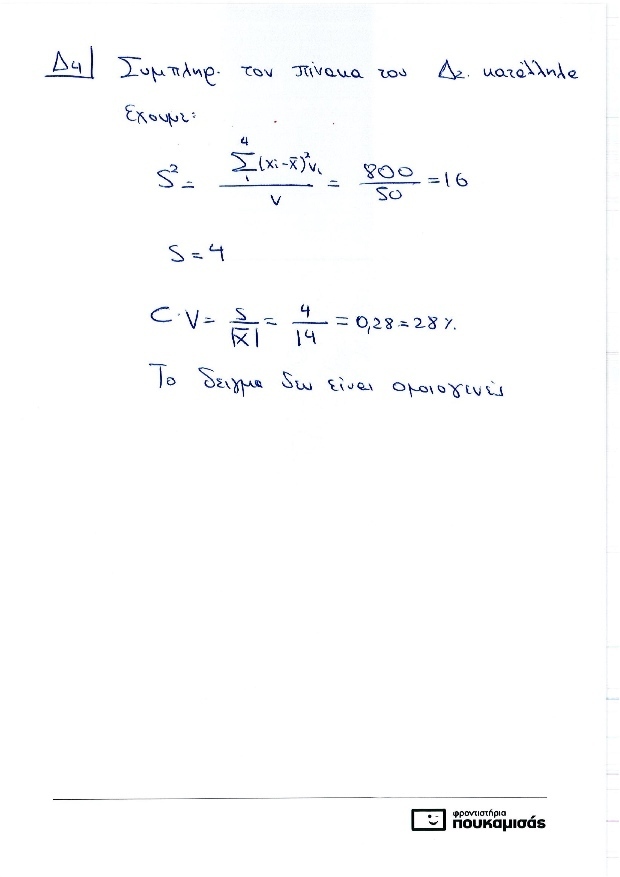 Δ4| Συμπληρ. τον πίνακα του Δ2. κατάλληλα
έχουμε:
S² = \frac{\sum_{1}^{4}(xi-x̄)²νi}{ν} = \frac{800}{50} = 16
S = 4
C.V = \frac{S}{|x̄|} = \frac{4}{14} = 0,28 = 28 %.
Το δείγμα δεν είναι ομοιογενές
φροντιστήρια
πουκαμισάς